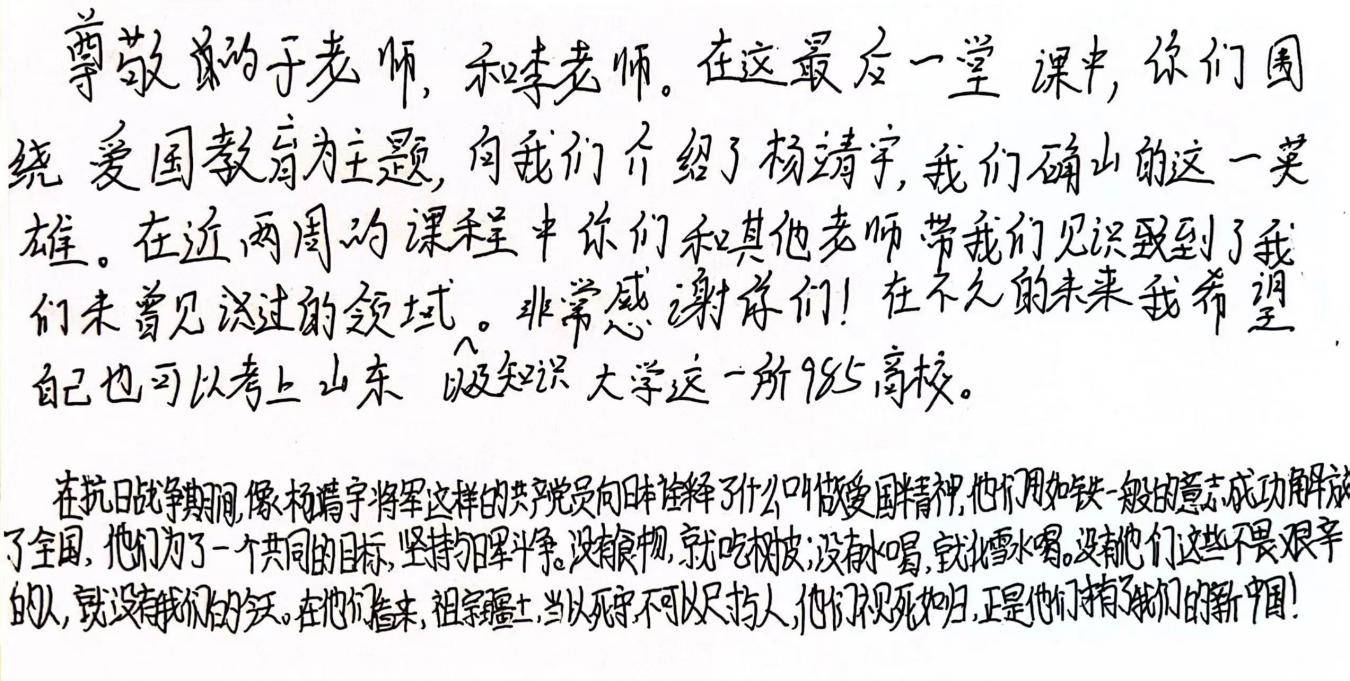 尊敬的于老师,和李老师。在这最后一堂课中,你们围
绕爱国教育为主题,向我们介绍了杨靖宇,我们确山的这一英
雄。在近两周的课程中你们和其他老师带我们见识到了我
们未曾见识过的领域以及知识。非常感谢你们!在不久的未来我希望
自己也可以考上山东大学这一所985高校。
在抗日战争期间,像杨靖宇将军这样的共产党员向日本诠释了什么叫做爱国精神,他们用如铁一般的意志成功解放
了全国,他们为了一个共同的目标,坚持与日军斗争。没有食物,就吃树皮;没有水喝,就化雪水喝。没有他们这些不畏艰辛
的人,就没有我们的今天。在他们看来,祖宗疆土,当以死守,不可以尺寸与人,他们视死如归,正是他们才有了我们的新中国!